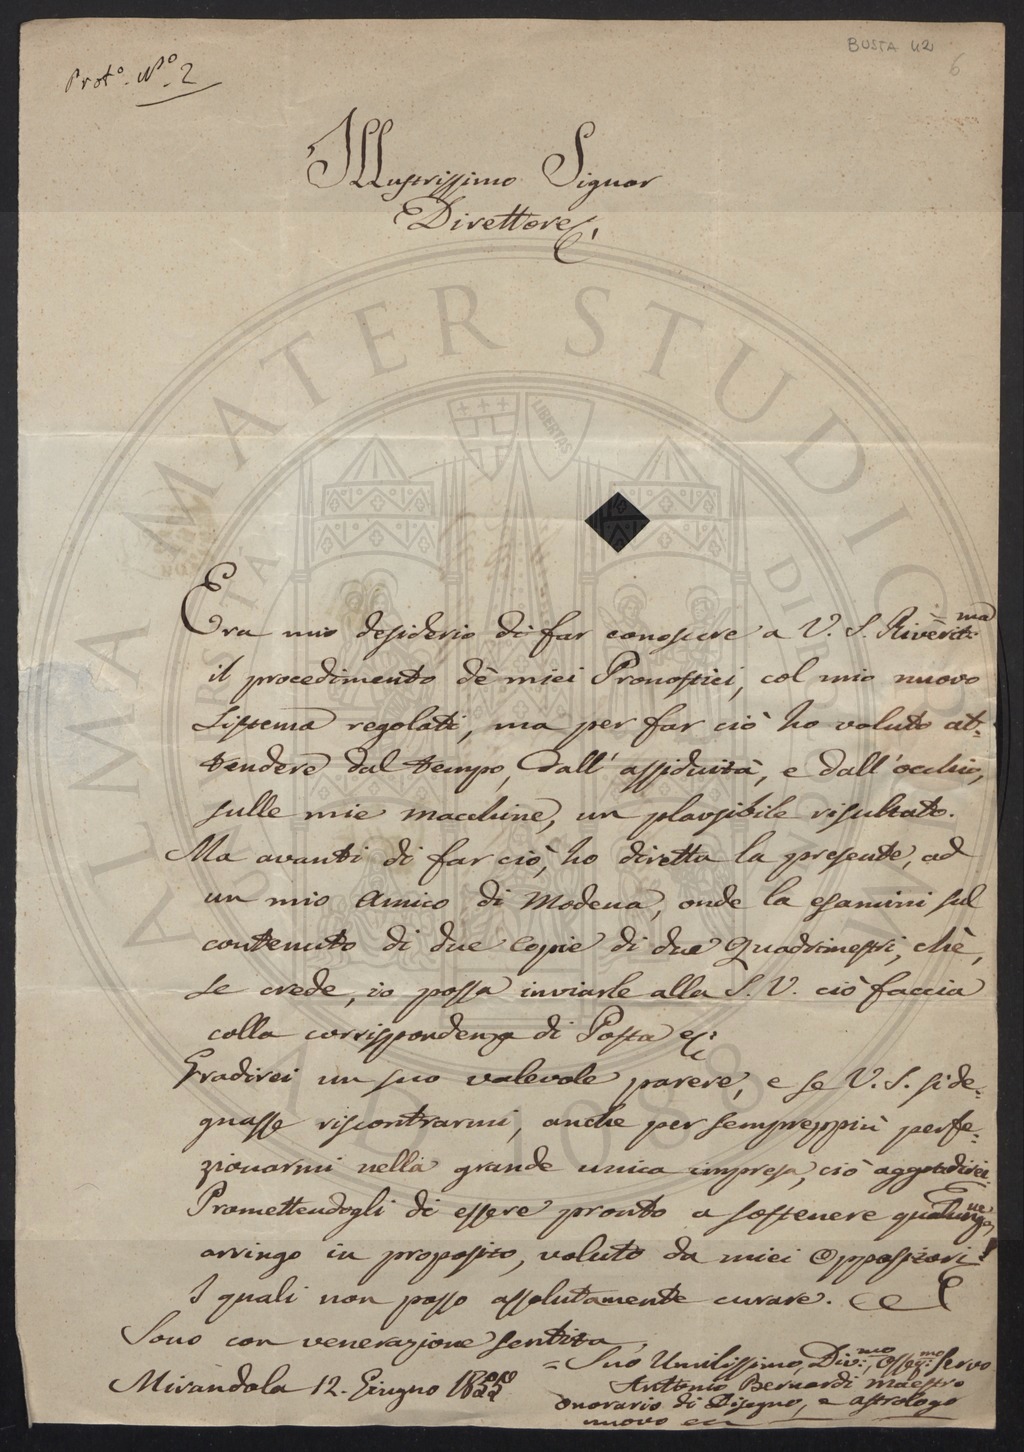 BUSTA 42
6
Prot.o N.o 2
Illustrissimo Signor
Direttore
ALMA MATER STUDIORUM
LIBERTAS
A.D. 1088
Era mio desiderio di far conoscere a V. S. Riverit.ma
il procedimento dè miei Pronostici, col mio nuovo
Sistema regolati, ma per far ciò ho voluto at=
tendere dal tempo, dall' assiduità, e dall' occhio,
sulle mie macchine, un plausibile risultato.
Ma avanti di far ciò, ho diretta la presente, ad
un mio Amico di Modena, onde la esamini sul
contenuto di due Copie di due Quadrimestri, chè,
se crede, io possa inviarle alla S. V. ciò faccia
colla corrispondenza di Posta
Gradirei un suo valevole parere, e se V. S. si de=
gnasse riscontrarmi, anche per semprepiù perfe=
zionarmi nella grande unica impresa, ciò aggradirei.
Promettendogli di essere pronto a sostenere qualunque
arringo in proposito, voluto da miei Oppositori!
I quali non posso assolutamente curare.
Sono con venerazione sentita
= Suo Umilissimo, Div.mo, Osseq.mo Servo
Mirandola 12. Giugno
Antonio Bernardi Maestro
onorario di Disegno, e astrologo
nuovo